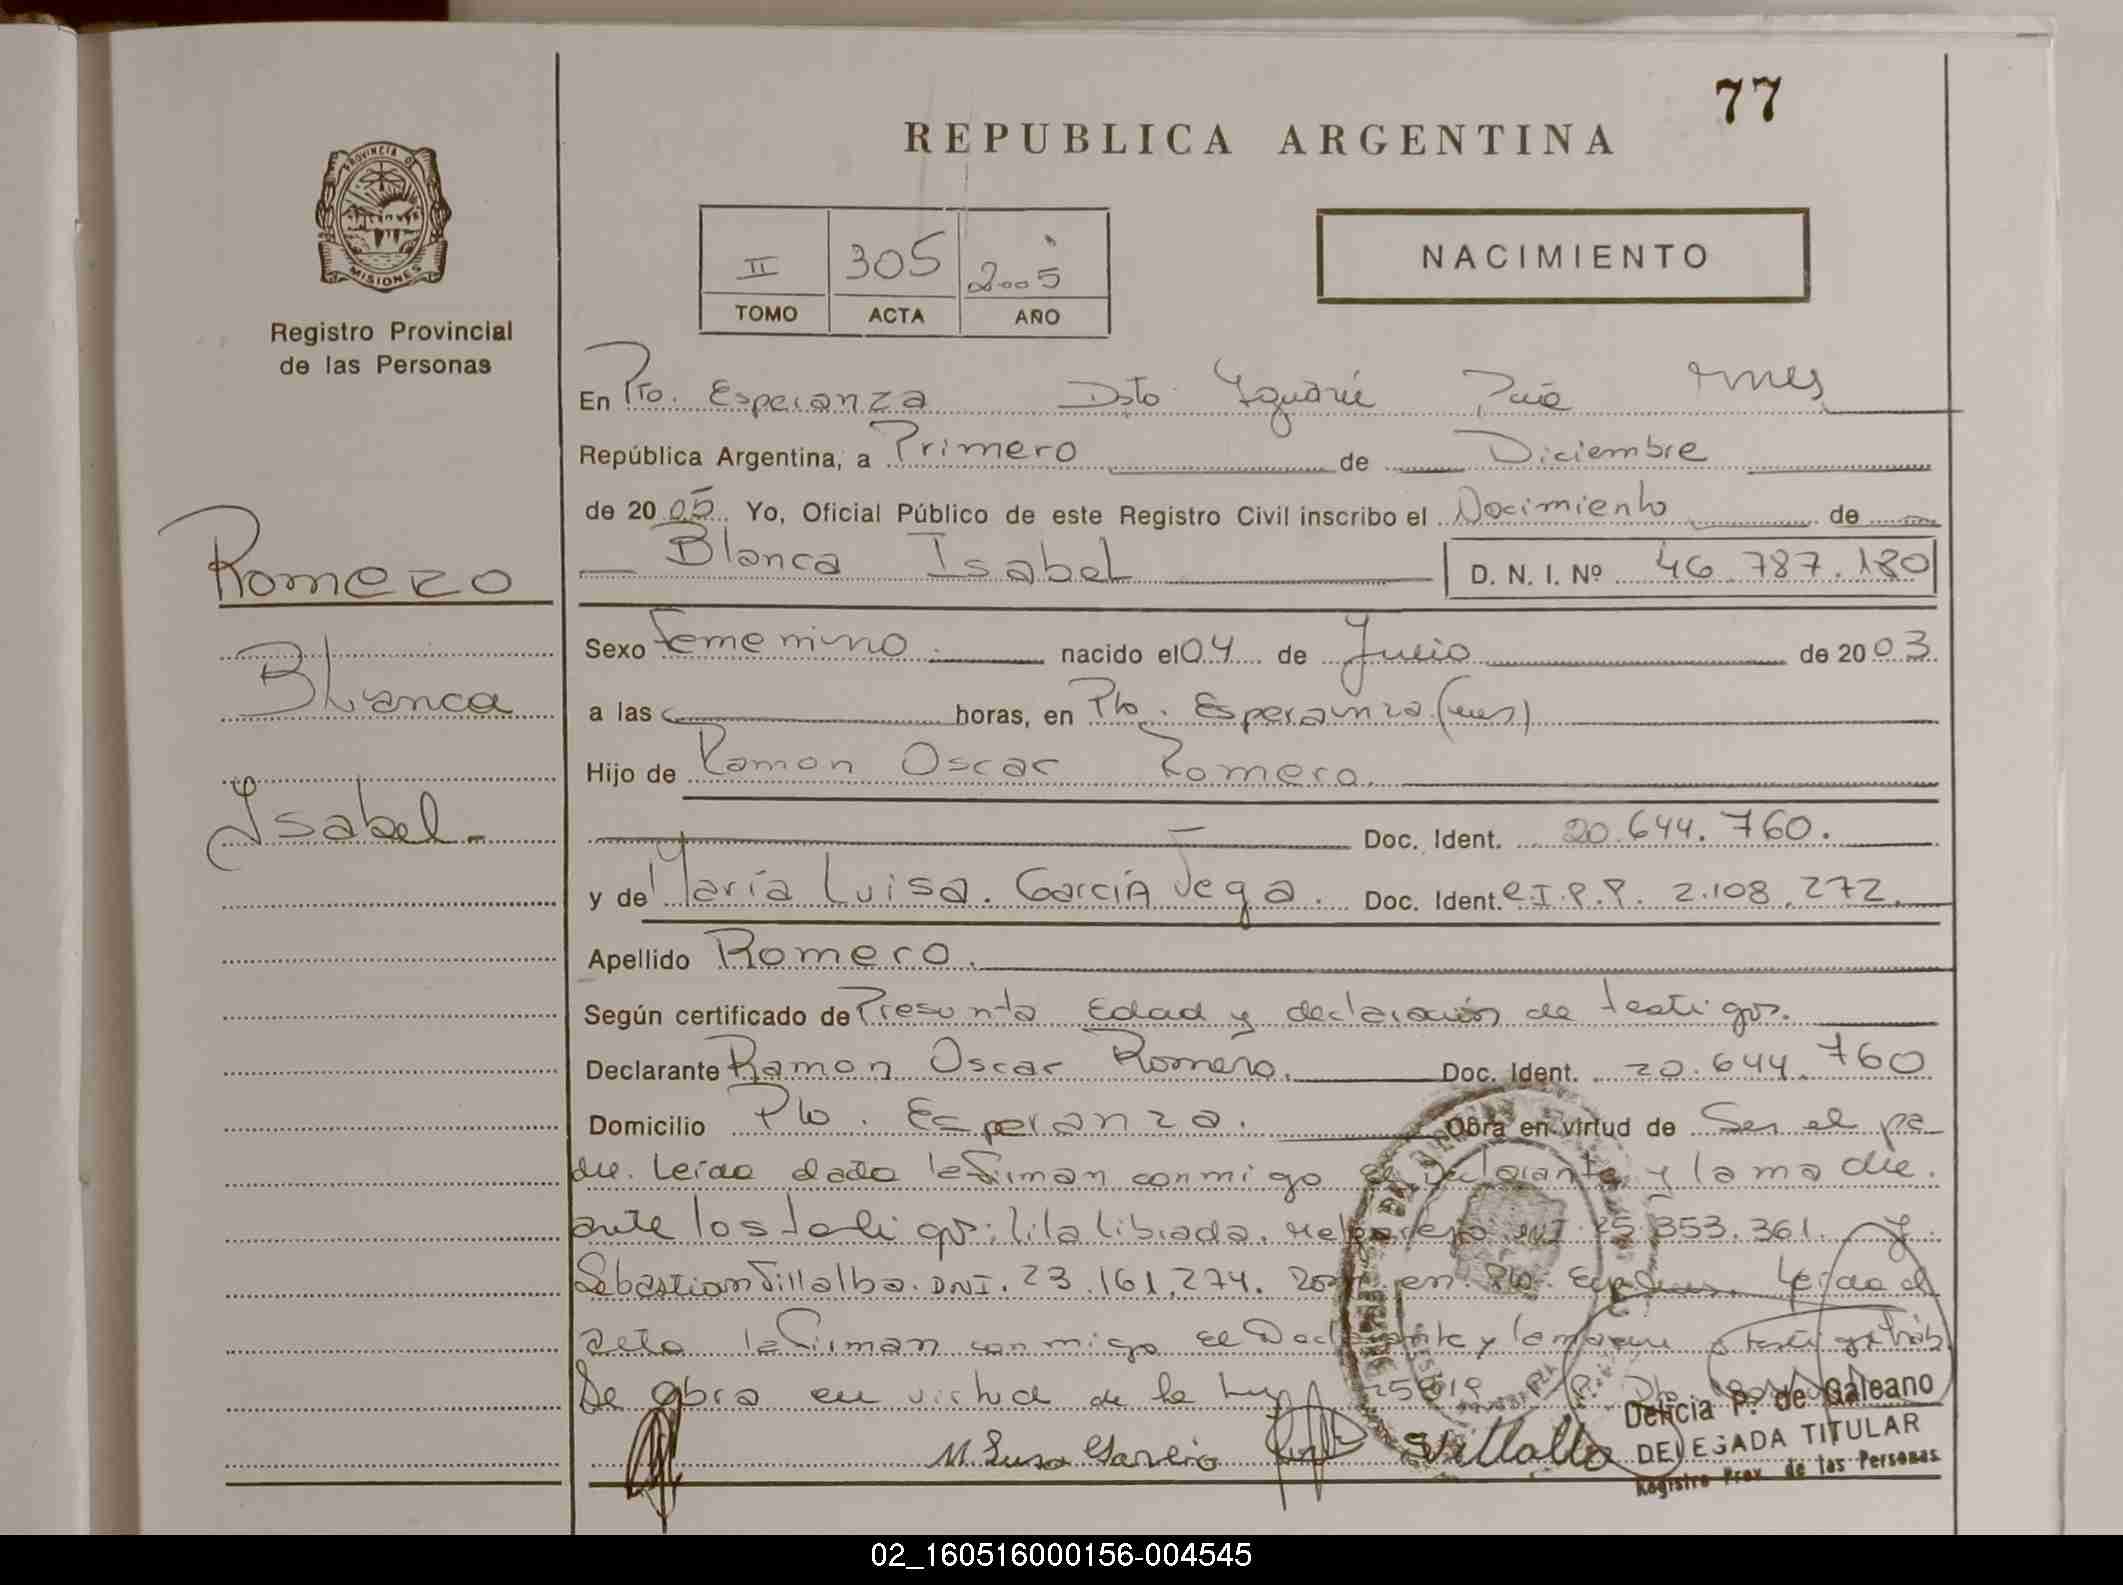 77
REPUBLICA ARGENTINA
PROVINCIA DE
MISIONES
Registro Provincial
de las Personas
II 305 2005
TOMO ACTA AÑO
NACIMIENTO
Romero
Blanca
Isabel
En Pto. Esperanza Dsto Yguazú
República Argentina, a Primero de Diciembre
de 20 05 Yo, Oficial Público de este Registro Civil inscribo el Nacimiento de
Blanca Isabel D. N. I. Nº 46.787.180
Sexo Femenino nacido el 04 de Julio de 20 03
a las horas, en Pto. Esperanza (mes)
Hijo de Ramon Oscar Romero.
Doc. Ident. 20.644.760.
y de María Luisa. García Vega. Doc. Ident. C.I.P.P. 2.108.272
Apellido Romero.
Según certificado de Presunta Edad y declaración de testigos.
Declarante Ramon Oscar Romero. Doc. Ident. 20.644.760
Domicilio Pto. Esperanza. Obra en virtud de Ser el pa
dre. Leida el acta la firman conmigo el Declarante y la madre.
ante los testigos: lila libiada. DNI. 25.353.361. y
Sebastian Villalba. DNI. 23.161.274. en Pto. Leida el
acta la firman conmigo el Declarante y la madre y testigos
Se obra en virtud de la Ley
M. Luisa Garcia Villalba
Delicia P. de Galeano
DELEGADA TITULAR
Registro Prov. de las Personas
02_160516000156-004545